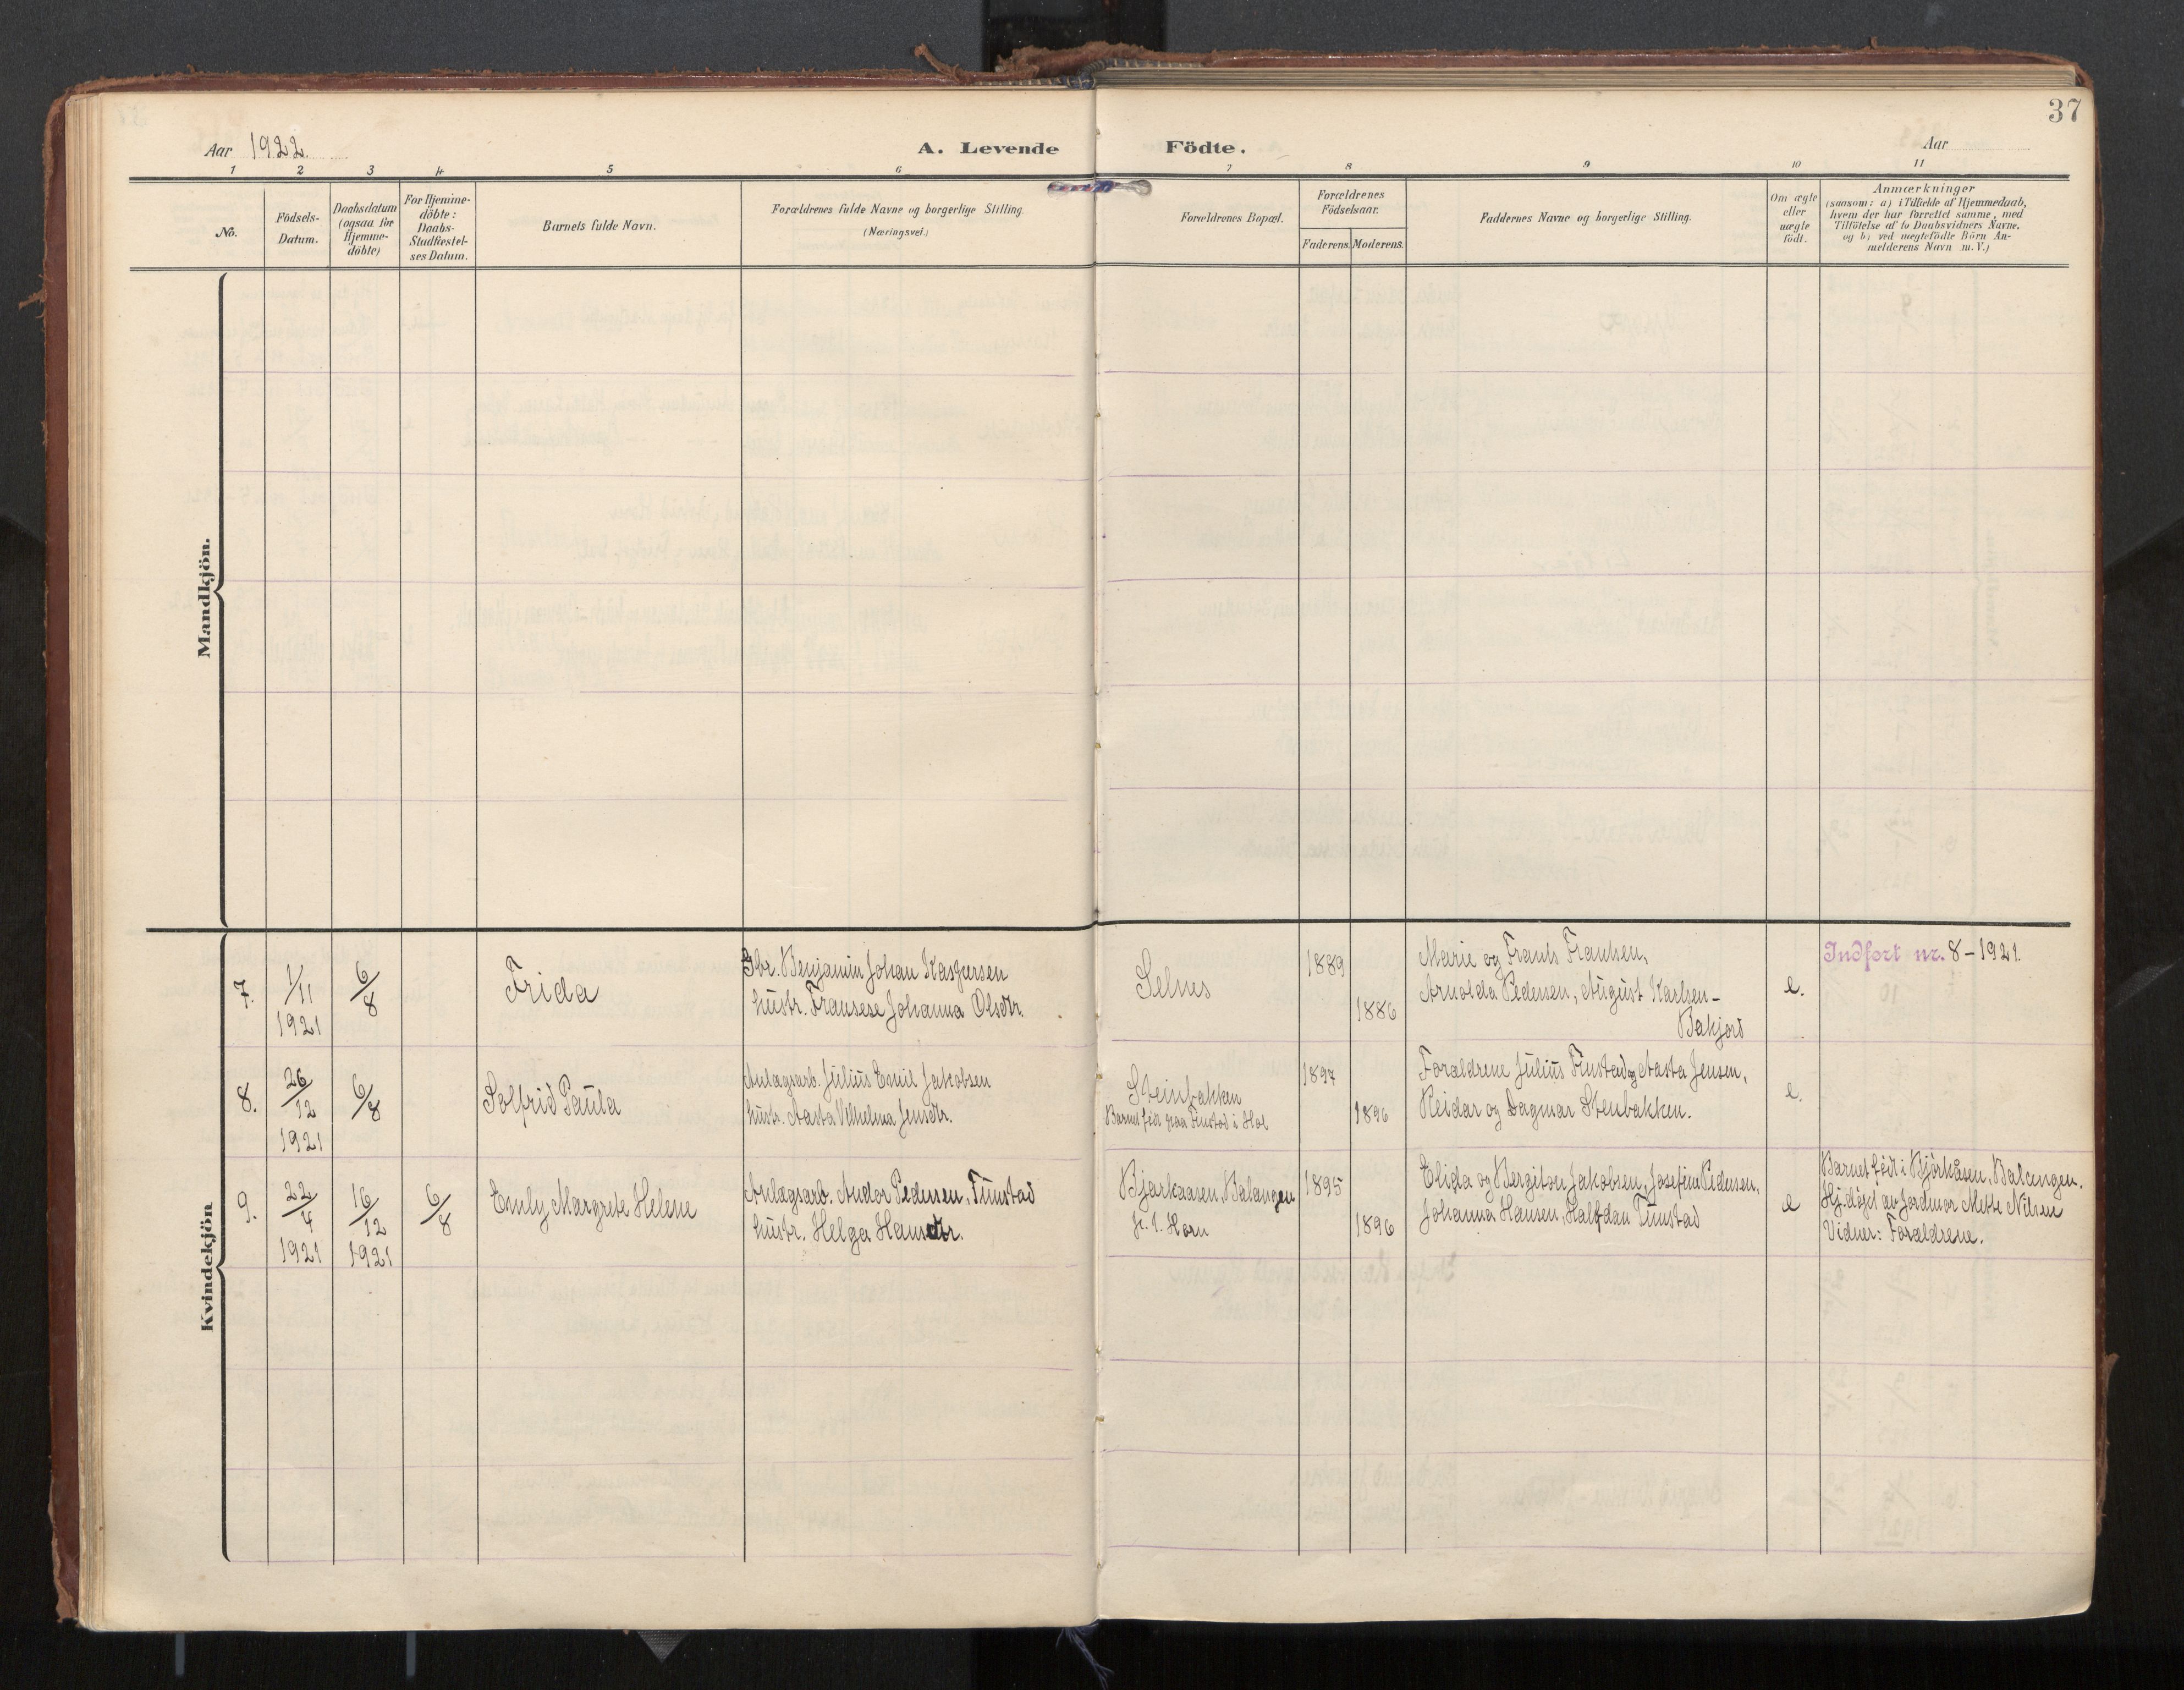 37
Aar 1922.
A. Levende Födte.
Aar
1 2 3 4 5 6 7 8 9 10 11
No.
Födsels-
Datum.
Daabsdatum
(ogsaa for
Hjemme-
döbte)
For Hjemme-
döbte:
Daabs-
Stadfæstel-
ses Datum.
Barnets fulde Navn.
Forældrenes fulde Navne og borgerlige Stilling.
(Næringsvei.)
Forældrenes Bopæl.
Forældrenes
Födselsaar.
Faderens. Moderens.
Faddernes Navne og borgerlige Stilling.
Om ægte
eller
uægte
födt.
Anmærkninger
(saasom: a) i Tilfælde af Hjemmedaab,
hvem der har forrettet samme, med
Tilföielse af to Daabsvidners Navne,
og b) ved uægtefödte Börn An-
melderens Navn m. V.)
Mandkjön.
Kvindekjön
7.
1/11
1921
6/8
Frida
Gbr. Benjamin Johan Kaspersen
hustr. Fransese Johanna Olsdtr.
Selnes
1889
1886
Marie og Frants Frantsen,
Arnolda Pedersen, August Karlsen-
Bakjord
e.
Indfört nr. 8-1921.
8.
26/12
1921
6/8
Solfrid Paula
Anlægsarb. Julius Emil Jakobsen
hustr. Aasta Vilhelma Jensdtr.
Steinbakken
Barnet födt paa Finstad i Hol
1897
1896
Forældrene Julius Finstad og Aasta Jensen,
Reidar og Dagmar Stenbakken.
e.
9.
22/4
1921
16/12
1921
6/8
Emly Margrete Helene
Anlægsarb. Andor Pedersen, Tunstad
hustr. Helga Hansdtr.
Bjørkaasen, Balangen
1895
1896
Elida og Bergiton Jakobsen, Josefine Pedersen,
Johanna Hansen, Halfdan Tunstad
e
Barnet födt i Björkåsen, Balangen.
Hj.döpt av Jordmor Mette Nilsen
Vidner: Forældrene.